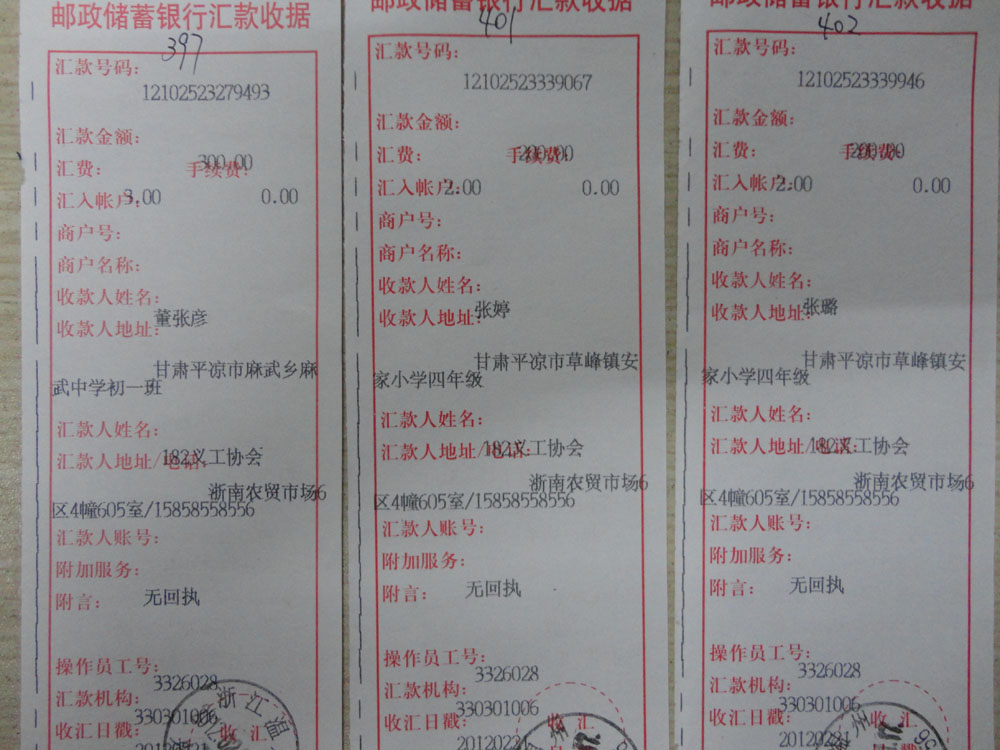 邮政储蓄银行汇款收据
397
汇款号码:
12102523279493
汇款金额:
300.00
汇费: 手续费:
3.00 0.00
汇入帐户:
商户号:
商户名称:
收款人姓名:
董张彦
收款人地址:
甘肃平凉市麻武乡麻
武中学初一班
汇款人姓名:
182义工协会
汇款人地址/电话:
浙南农贸市场6
区4幢605室/15858558556
汇款人账号:
附加服务:
附言: 无回执
操作员工号:
3326028
汇款机构:
330301006
收汇日戳:
浙江温
收汇
邮政储蓄银行汇款收据
401
汇款号码:
12102523339067
汇款金额:
200.00
汇费: 手续费:
2.00 0.00
汇入帐户:
商户号:
商户名称:
收款人姓名:
张婷
收款人地址:
甘肃平凉市草峰镇安
家小学四年级
汇款人姓名:
182义工协会
汇款人地址/电话:
浙南农贸市场6
区4幢605室/15858558556
汇款人账号:
附加服务:
附言: 无回执
操作员工号:
3326028
汇款机构:
330301006
收汇日戳:
20120221
收汇
邮政储蓄银行汇款收据
402
汇款号码:
12102523339946
汇款金额:
200.00
汇费: 手续费:
2.00 0.00
汇入帐户:
商户号:
商户名称:
收款人姓名:
张璐
收款人地址:
甘肃平凉市草峰镇安
家小学四年级
汇款人姓名:
182义工协会
汇款人地址/电话:
浙南农贸市场6
区4幢605室/15858558556
汇款人账号:
附加服务:
附言: 无回执
操作员工号:
3326028
汇款机构:
330301006
收汇日戳:
20120221
州
收汇